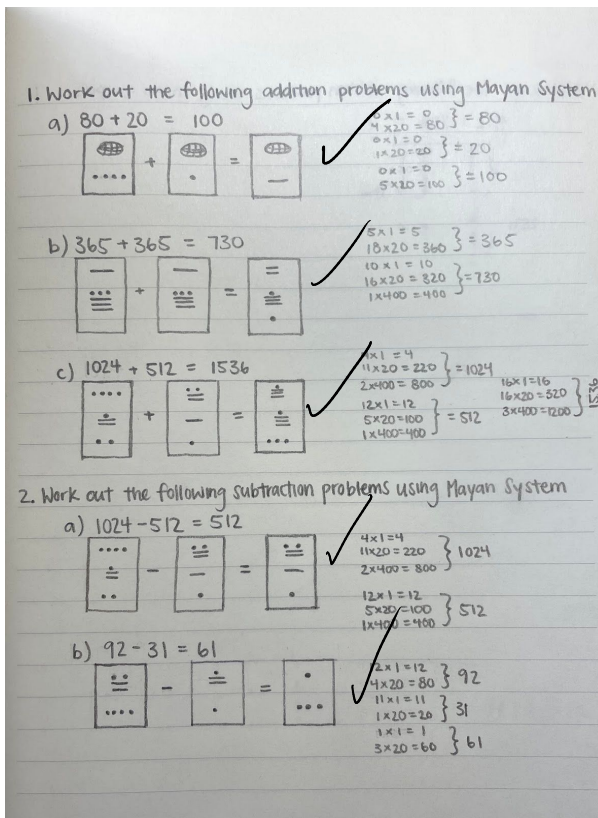 1. Work out the following addition problems using Mayan System
a) 80 + 20 = 100
+ =
0x1 = 0
4x20=80 } = 80
0x1=0
1x20=20 } = 20
0x1=0
5x20=100 } = 100
b) 365 + 365 = 730
+ =
5x1=5
18x20=360 } = 365
10x1=10
16x20=320
1x400=400 } = 730
c) 1024 + 512 = 1536
+ =
4x1=4
11x20=220
2x400=800 } = 1024
12x1=12
5x20=100
1x400=400 } = 512
16x1=16
16x20=320
3x400=1200 } 1536
2. Work out the following subtraction problems using Mayan System
a) 1024 - 512 = 512
- =
4x1=4
11x20=220
2x400=800 } 1024
12x1=12
5x20=100
1x400=400 } 512
b) 92 - 31 = 61
- =
12x1=12
4x20=80 } 92
11x1=11
1x20=20 } 31
1x1=1
3x20=60 } 61